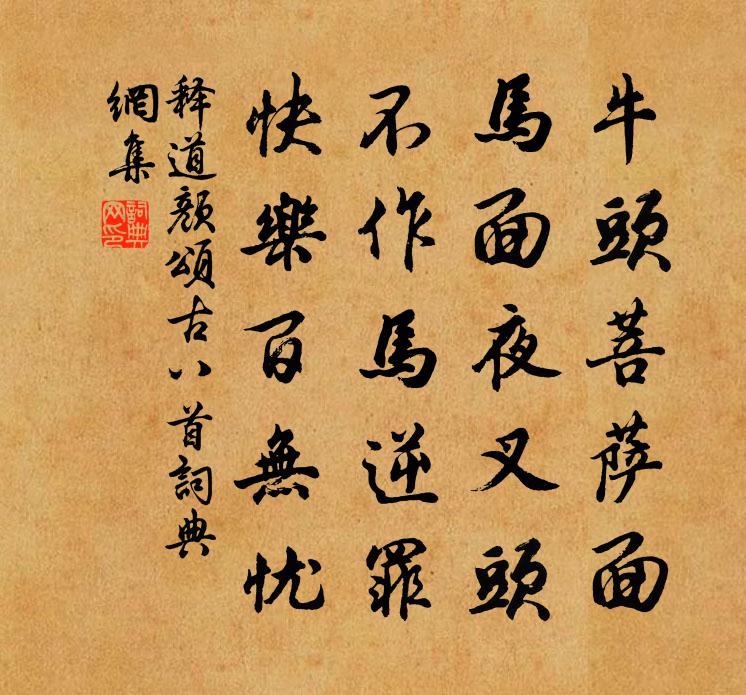 牛頭菩萨面
馬面夜叉頭
不作馬逆罪
快樂百無忧
释道颜頌古八首詞典
網集
詞典
网印